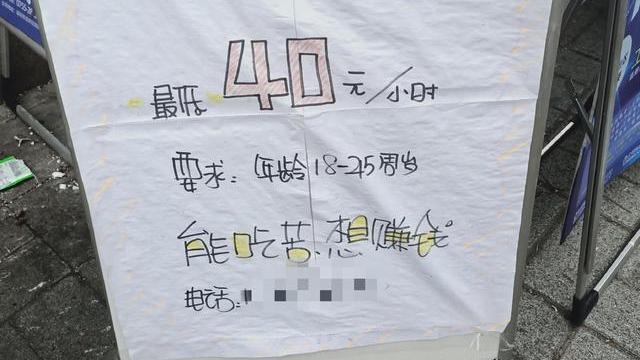 最低40元/小时
要求:年龄18-25周岁
能吃苦.想赚钱。
电话: